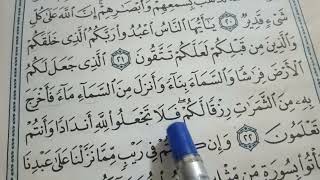 بِسَمْعِهِمْ وَأَبْصَٰرِهِمْ إِنَّ ٱللَّهَ عَلَىٰ كُلِّ
شَىْءٍ قَدِيرٌ ٢٠ يَٰٓأَيُّهَا ٱلنَّاسُ ٱعْبُدُوا۟ رَبَّكُمُ ٱلَّذِى خَلَقَكُمْ
وَٱلَّذِينَ مِن قَبْلِكُمْ لَعَلَّكُمْ تَتَّقُونَ ٢١ ٱلَّذِى جَعَلَ لَكُمُ
ٱلْأَرْضَ فِرَٰشًا وَٱلسَّمَآءَ بِنَآءً وَأَنزَلَ مِنَ ٱلسَّمَآءِ مَآءً فَأَخْرَجَ
بِهِۦ مِنَ ٱلثَّمَرَٰتِ رِزْقًا لَّكُمْ ۖ فَلَا تَجْعَلُوا۟ لِلَّهِ أَندَادًا وَأَنتُمْ
تَعْلَمُونَ ٢٢ وَإِن فِى رَيْبٍ مِّمَّا نَزَّلْنَا عَلَىٰ عَبْدِنَا
فَأْتُوا۟ بِسُورَةٍ مِّن